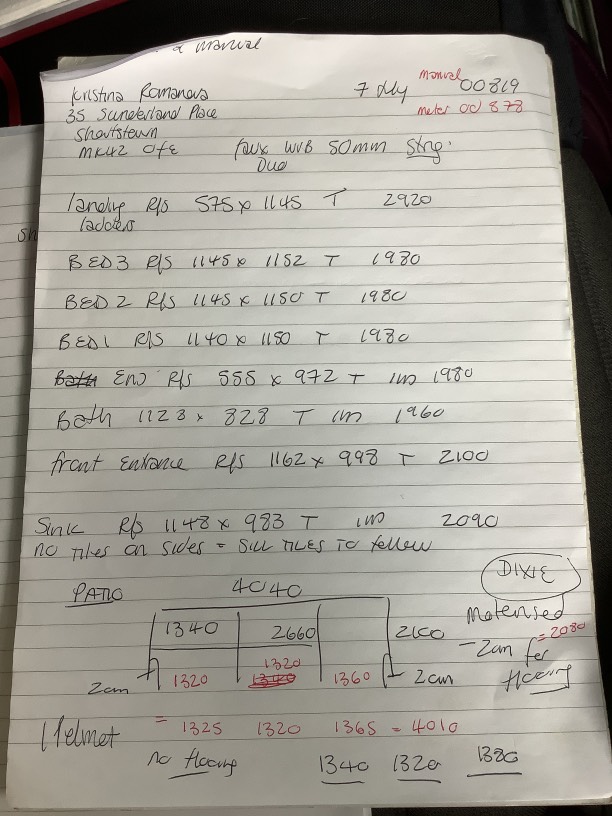 & manual
Kristina Romanova 7 July manual 00819
35 Sunderland Place meter 00 878
Shortstown
MK42 0FE faux WVB 50mm Strg.
Duo
landing R/S 575 x 1145 T 2920
ladders
BED 3 R/S 1145 x 1152 T 1980
BED 2 R/S 1145 x 1150 T 1980
BED 1 R/S 1140 x 1150 T 1980
Bath EN) R/S 555 x 972 T 1m 1980
Bath 1123 x 828 T 1m 1960
front Entrance R/S 1162 x 998 T 2100
Sink R/S 1148 x 983 T 1m 2090
no Tiles on Sides = Sill TILES TO follow
PATIO 4040 DIXIE
Motorised
1340 2660 2100 - 2cm for = 2080
flooring
2cm 1320 1320 1360 2cm
Helmet = 1325 1320 1365 = 4010
no flooring 1340 1320 1380